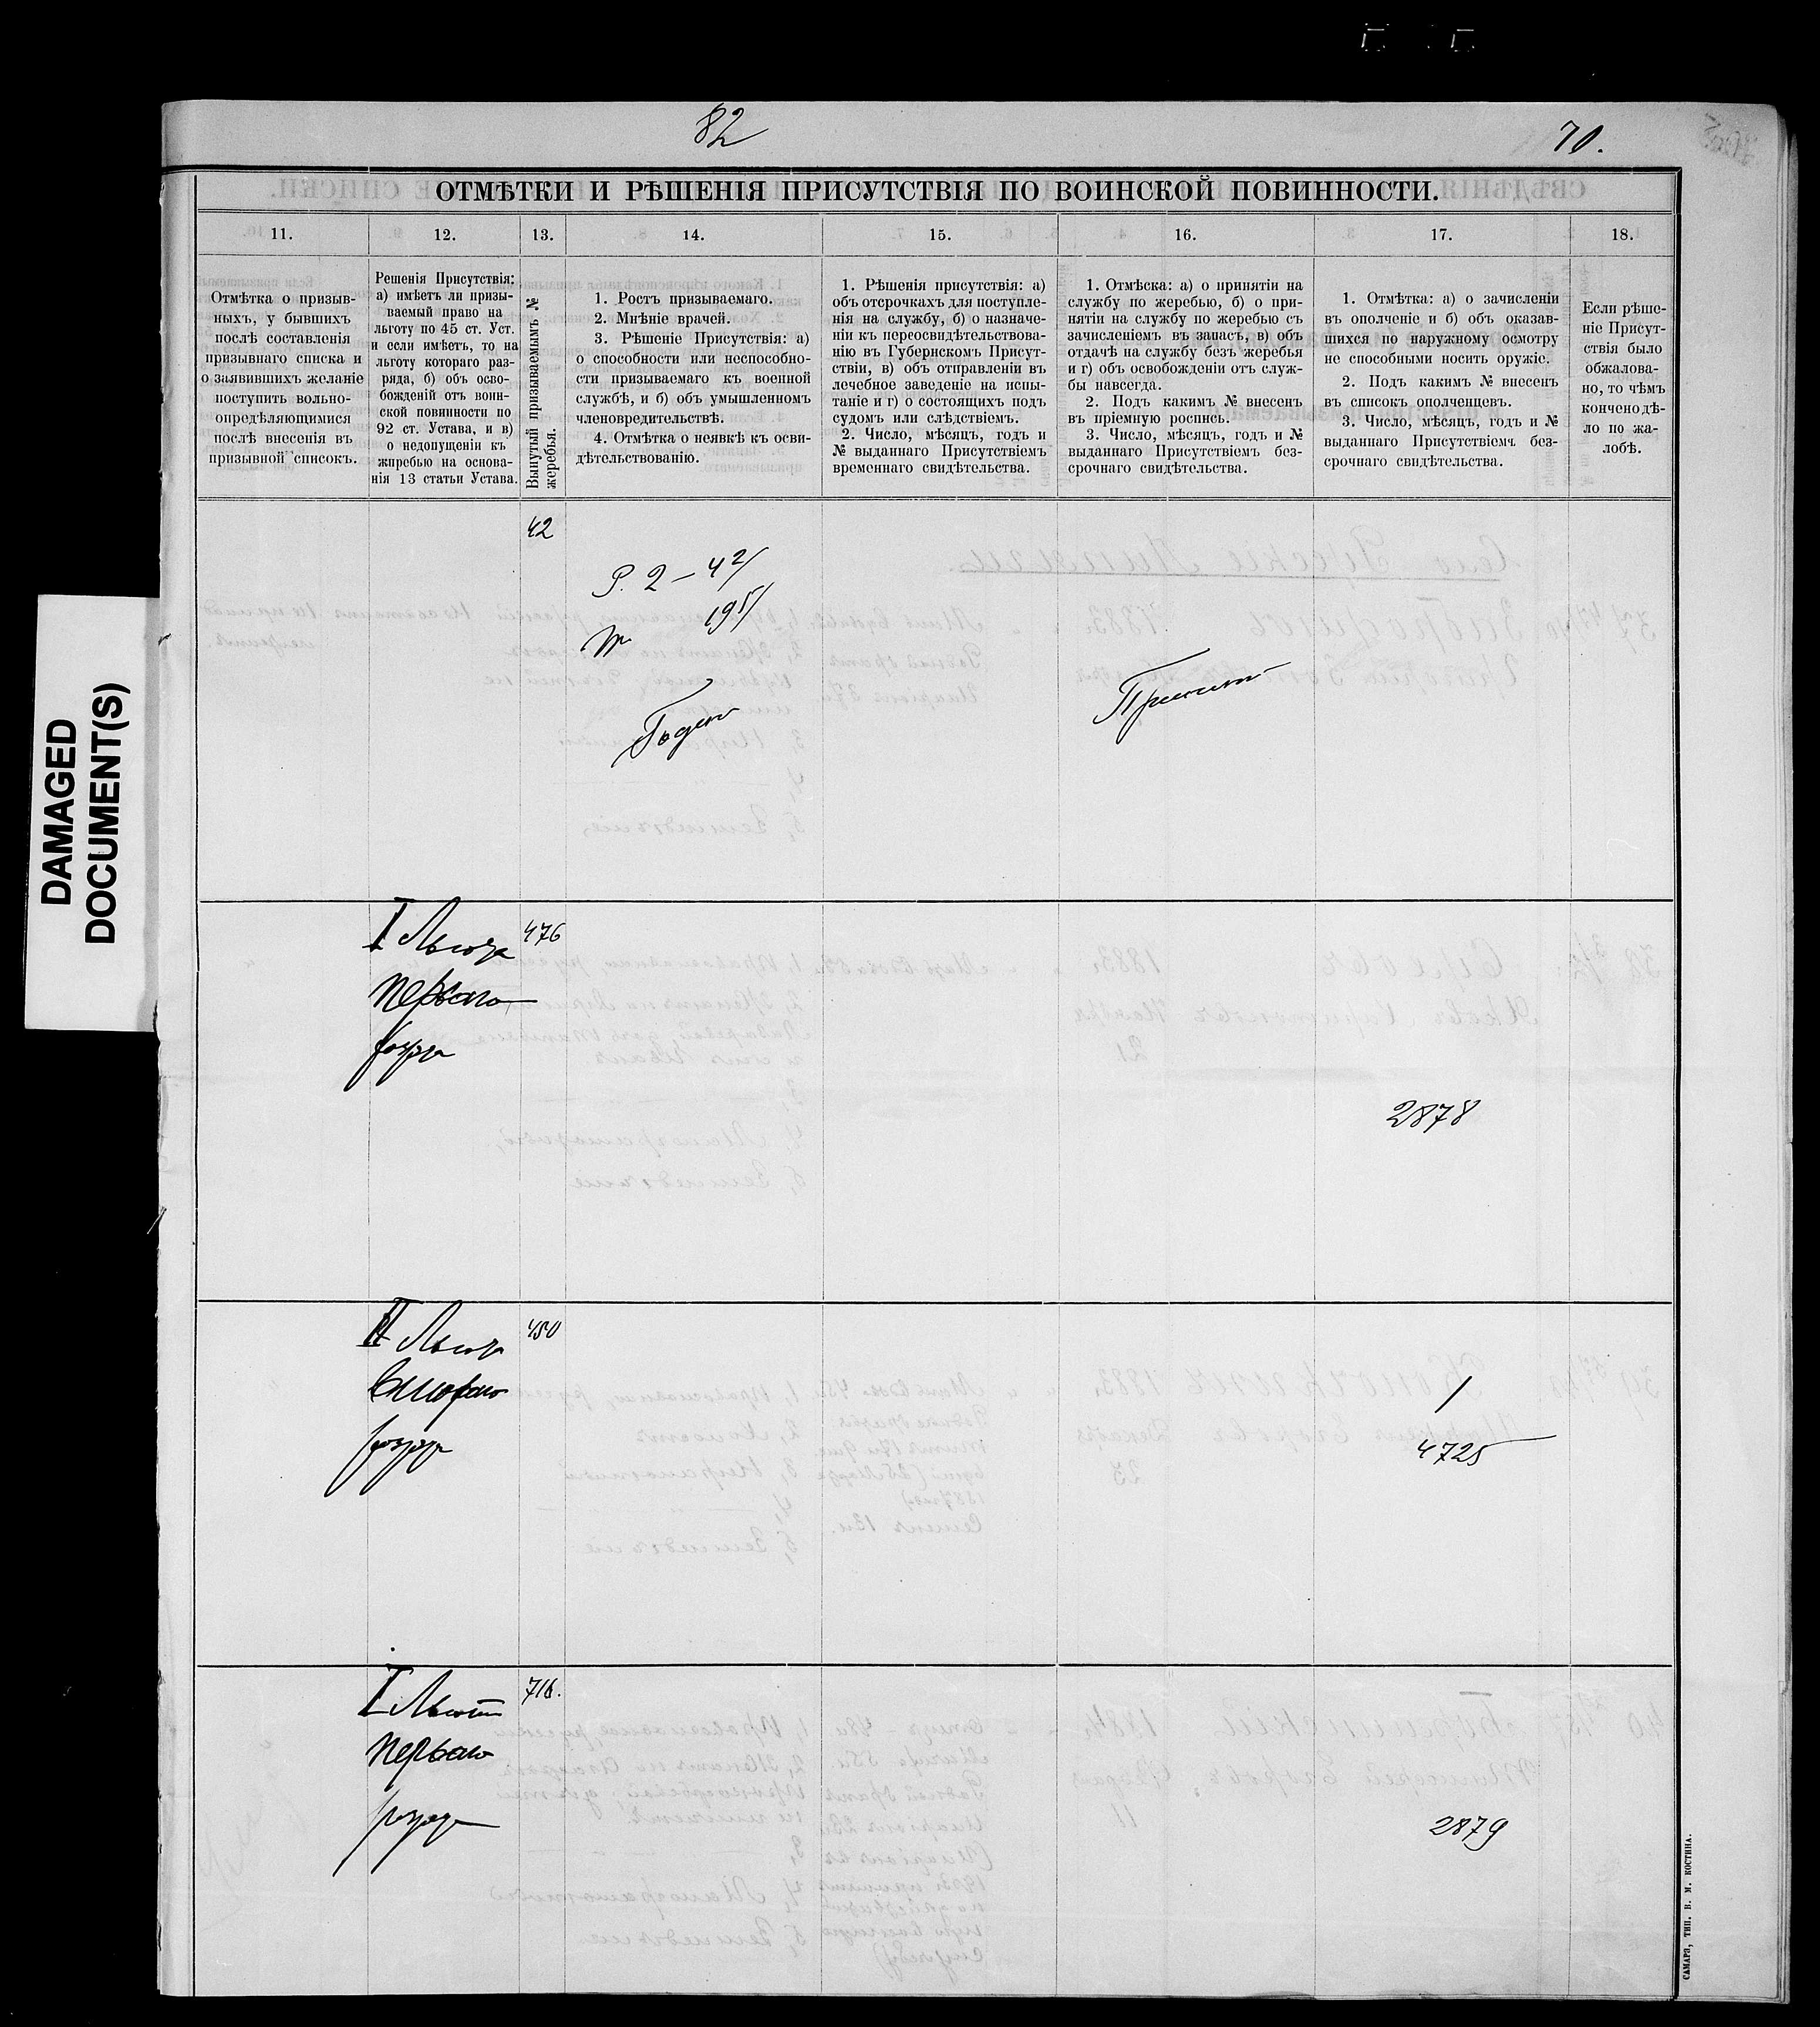 82
70.
ОТМѢТКИ И РѢШЕНІЯ ПРИСУТСТВІЯ ПО ВОИНСКОЙ ПОВИННОСТИ.
11.
12.
13.
14.
15.
16.
17.
18.
Отмѣтка о призыв-
ныхъ, у бывшихъ
послѣ составленія
призывнаго списка и
о заявившихъ желаніе
поступить вольно-
опредѣляющимися
послѣ внесенія въ
призывной списокъ.
Решенія Присутствія:
а) имѣетъ ли призы-
ваемый право на
льготу по 45 ст. Уст.
и если имѣетъ, то на
льготу котораго раз-
ряда, б) объ осво-
божденій отъ воин-
ской повинности по
92 ст. Устава, и в)
о недопущеніи къ
жиребью на основа-
нія 13 статьи Устава.
Вынутый призываемымъ №
жеребья.
1. Ростъ призываемаго.
2. Мнѣніе врачей.
3. Рѣшеніе Присутствія: а)
о способности или неспособно-
сти призываемаго къ военной
службѣ, и б) объ умышленномъ
членовредительствѣ.
4. Отмѣтка о неявкѣ къ осви-
дѣтельствованію.
1. Рѣшенія присутствія: а)
объ отсрочкахъ для поступле-
нія на службу, б) о назначе-
ніи къ переосвидѣтельствова-
нію въ Губернскомъ Присут-
ствіи, в) объ отправленіи въ
лечебное заведеніе на испы-
таніе и г) о состоящихъ подъ
судомъ или слѣдствіемъ.
2. Число, мѣсяцъ, годъ и
№ выданнаго Присутствіемъ
временнаго свидѣтельства.
1. Отмѣска: а) о принятіи на
службу по жеребью, б) о при-
нятіи на службу по жеребью съ
зачисленіемъ въ запасъ, в) объ
отдачѣ на службу безъ жеребья
и г) объ освобожденіи отъ служ-
бы навсегда.
2. Подъ какимъ № внесенъ
въ пріемную роспись.
3. Число, мѣсяцъ, годъ и №
выданнаго Присутствіемъ без-
срочнаго свидѣтельства.
1. Отмѣтка: а) о зачисленіи
въ ополченіе и б) объ оказав-
шихся по наружному осмотру
не способными носить оружіе.
2. Подъ какимъ № внесенъ
въ списокъ ополченцевъ.
3. Число, мѣсяцъ, годъ и №
выданнаго Присутствіемъ без-
срочнаго свидѣтельства.
Если рѣше-
ніе Присут-
ствія было
обжалова-
но, то чѣмъ
кончено дѣ-
ло по жа-
лобѣ.
42
Р. 2 – 4 2/
19 1/
Годен
Принят
I Льгота
первого
разряда
476
2878
II Льгота
Второго
разряда
450
1
4725
I Льгота
первого
разряда
716.
2879
САМАРА, ТИП. В. М. КОСТИНА.
DAMAGED
DOCUMENT(S)